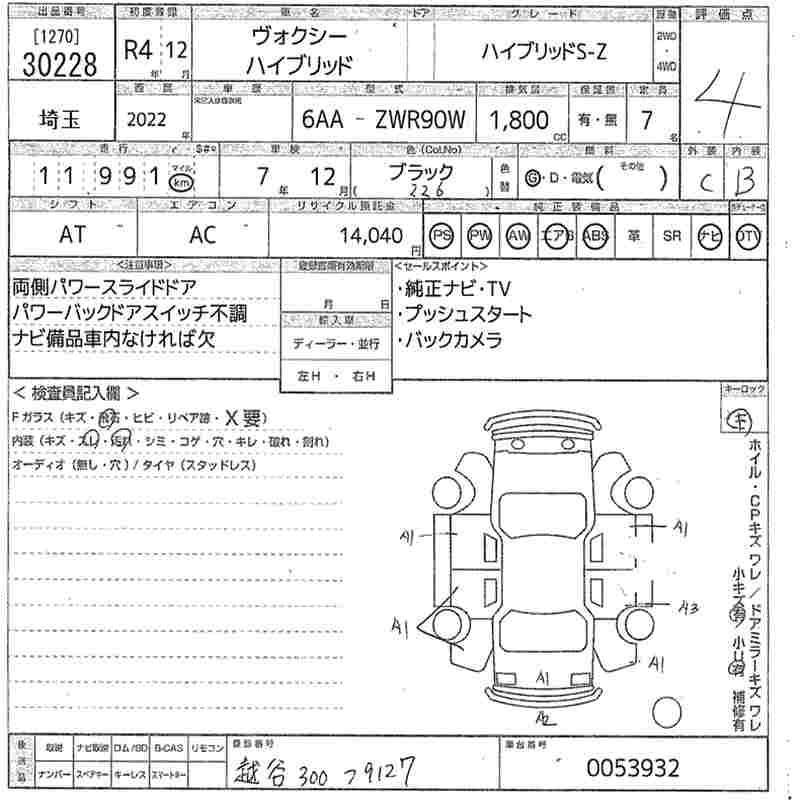 出品番号 初度登録 車名 ドア グレード 評価点
[1270]
30228
R4年 12月
ヴォクシー
ハイブリッド
ハイブリッドS-Z
2WD
・
4WD
4
車歴 型式 排気量 保証書 定員
埼玉
2022年
6AA - ZWR90W
1,800CC
有・無
7名
走行 車検 色(Col.No) 燃料 外装 内装
11991 マイル km
7年 12月
ブラック
(226)
色替
G・D・電気( その他 )
C
B
シフト エアコン リサイクル預託金 純正装備品
AT
AC
14,040円
PS PW AW エアB ABS 革 SR ナビ DTV
<注意事項>
両側パワースライドドア
パワーバックドアスイッチ不調
ナビ備品車内なければ欠
登録書類有効期限
月 日
輸入車
ディーラー・並行
左H ・ 右H
<セールスポイント>
・純正ナビ・TV
・プッシュスタート
・バックカメラ
< 検査員記入欄 >
Fガラス(キズ・飛石・ヒビ・リペア諸・X要)
内装(キズ・スレ・汚れ・シミ・コゲ・穴・キレ・破れ・割れ)
オーディオ(無し・穴)/タイヤ(スタッドレス)
キーロック
キ
A1
A1
A1
A3
A1
A1
A2
ホイル・CPキズ ワレ/ドアミラーキズ ワレ
小キズ有/小U有 補修有
後送品
取説 ナビ取説 ロム/SD B-CAS リモコン
ナンバー スペアキー キーレス スマートキー
登録番号
越谷 300 フ9127
車台番号
0053932